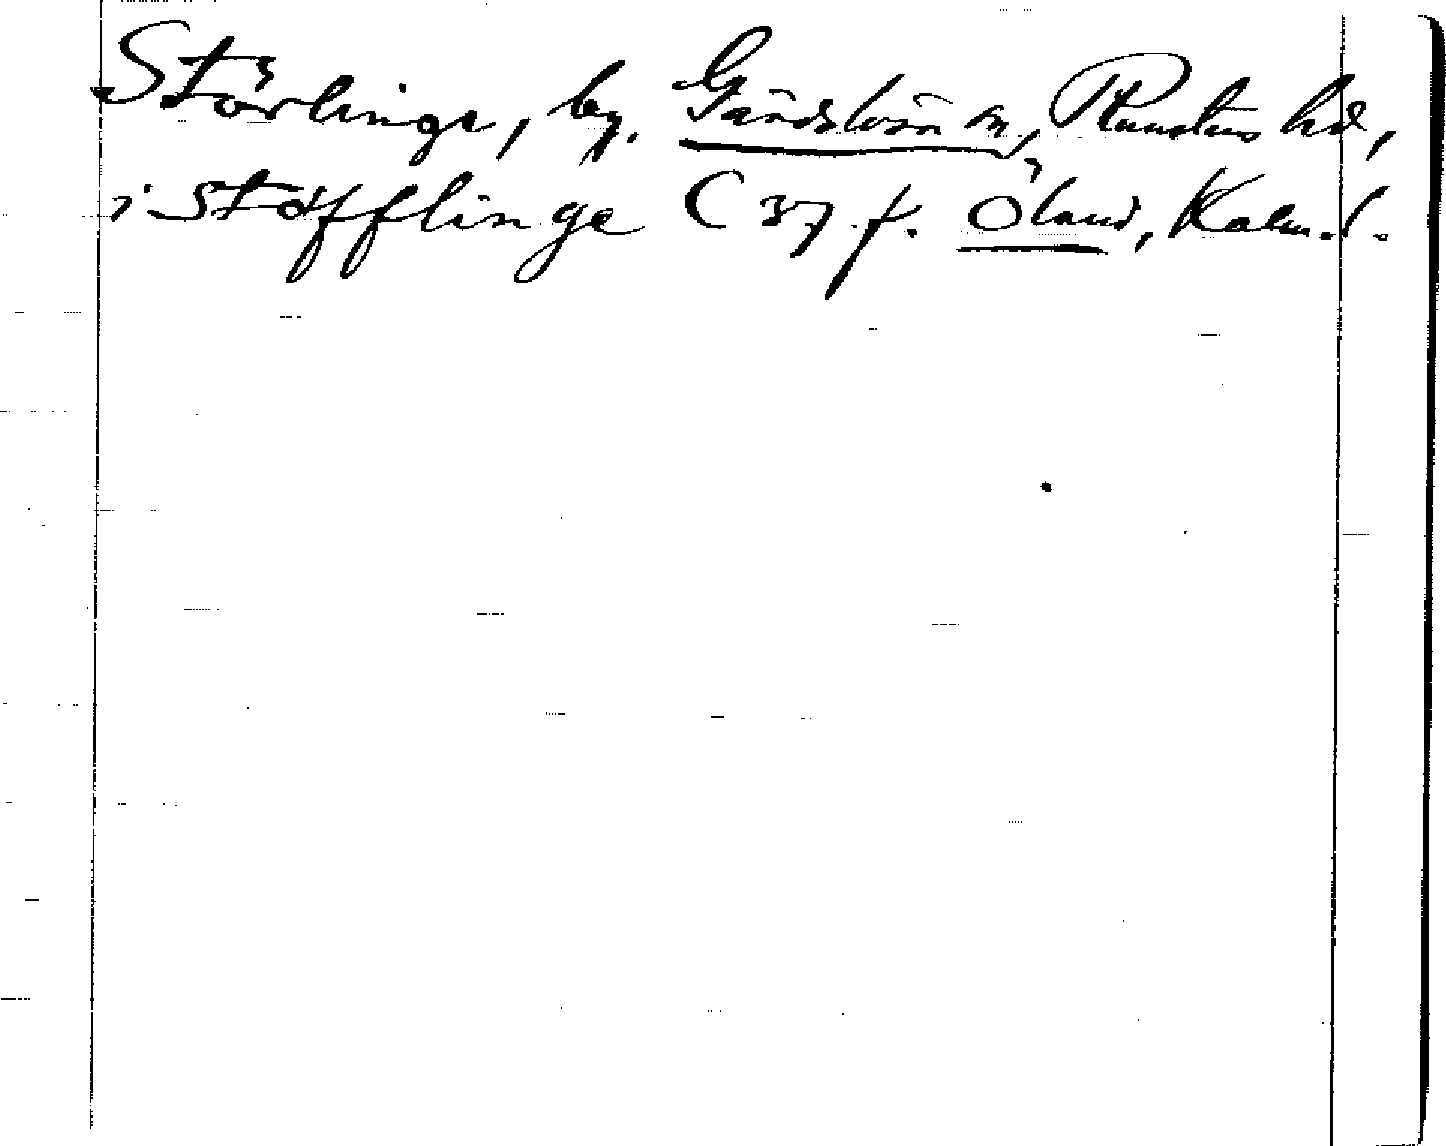 Störlinge, by. Gärdslösa sn, Runstens hd,
i Støfflinge C 37 f. Öland, Kalm. l.